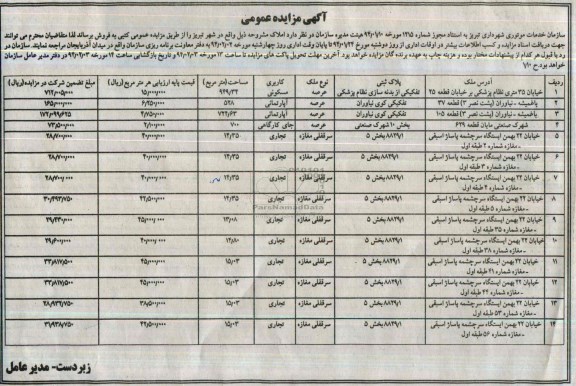 آگهی مزایده عمومی
سازمان خدمات موتوری شهرداری تبریز به استناد مجوز شماره ۱۲۱۵ مورخه ۹۲/۰۱/۱۰ هیئت مدیره سازمان در نظر دارد املاک مشروحه ذیل واقع در شهر تبریز را از طریق مزایده عمومی کتبی به فروش برساند لذا متقاضیان محترم می توانند
جهت دریافت اسناد مزایده و کسب اطلاعات بیشتر در اوقات اداری از روز دوشنبه مورخ ۹۲/۰۱/۲۲ تا پایان وقت اداری روز چهارشنبه مورخه ۹۲/۰۲/۰۲ به دفتر معاونت برنامه ریزی سازمان واقع در میدان آذربایجان مراجعه نمایند. سازمان در
رد یا قبول هر کدام از پیشنهادات مختار بوده و هزینه چاپ به عهده برنده گان مزایده خواهد بود. آخرین مهلت تحویل پاکت های مزایده تا ساعت ۱۳ مورخه ۹۲/۰۲/۰۲ و تاریخ بازگشایی ساعت ۱۲ مورخه ۹۲/۰۲/۰۳ در دفتر مدیر عامل سازمان
خواهد بود.
ردیف آدرس ملک پلاک ثبتی نوع ملک کاربری مساحت(متر مربع) قیمت پایه ارزیابی هر متر مربع(ریال) مبلغ تضمین شرکت در مزایده(ریال)
۱ خیابان ۳۵ متری نظام پزشکی بر خیابان قطعه ۲۵ تفکیکی از بدنه سازی نظام پزشکی عرصه مسکونی ۹۴۹/۳۴ ۱۵/۰۰۰/۰۰۰ ۷۱۲/۰۰۵/۰۰۰
۲ باغمیشه - نیاوران (پشت نصر ۳) قطعه ۳۷ تفکیکی کوی نیاوران عرصه آپارتمانی ۵۲۸ ۶/۲۵۰/۰۰۰ ۱۶۵/۰۰۰/۰۰۰
۳ باغمیشه - نیاوران (پشت نصر ۳) قطعه ۱۰۵ تفکیکی کوی نیاوران عرصه آپارتمانی ۷۲۲/۶۳ ۴/۷۵۰/۰۰۰ ۱۷۲/۰۹۹/۶۲۵
۴ شهرک صنعتی مایان قطعه ۶۳۹ بخش ۱۰ شهرک صنعتی عرصه جای کارگاهی ۷۰۰ ۲/۱۰۰/۰۰۰ ۷۳/۵۰۰/۰۰۰
۵ خیابان ۲۲ بهمن ایستگاه سرچشمه پاساژ اسبقی -مغازه شماره ۲ طبقه اول ۸۸۲۹/۱ بخش ۵ سرقفلی مغازه تجاری ۱۴/۳۵ ۴۰/۰۰۰/۰۰۰ ۲۸/۷۰۰/۰۰۰
۶ خیابان ۲۲ بهمن ایستگاه سرچشمه پاساژ اسبقی -مغازه شماره ۳ طبقه اول ۸۸۲۹/۱ بخش ۵ سرقفلی مغازه تجاری ۱۴/۳۵ ۴۰/۰۰۰/۰۰۰ ۲۸/۷۰۰/۰۰۰
۷ خیابان ۲۲ بهمن ایستگاه سرچشمه پاساژ اسبقی -مغازه شماره ۴ طبقه اول ۸۸۲۹/۱ بخش ۵ سرقفلی مغازه تجاری ۱۴/۳۵ ۴۰/۰۰۰/۰۰۰ ۲۸/۷۰۰/۰۰۰
۸ خیابان ۲۲ بهمن ایستگاه سرچشمه پاساژ اسبقی -مغازه شماره ۵ طبقه اول ۸۸۲۹/۱ بخش ۵ سرقفلی مغازه تجاری ۱۴/۳۵ ۴۲/۵۰۰/۰۰۰ ۳۰/۴۹۳/۷۵۰
۹ خیابان ۲۲ بهمن ایستگاه سرچشمه پاساژ اسبقی -مغازه شماره ۳۵ طبقه اول ۸۸۲۹/۱ بخش ۵ سرقفلی مغازه تجاری ۱۳/۰۸ ۴۵/۰۰۰/۰۰۰ ۲۹/۴۳۰/۰۰۰
۱۰ خیابان ۲۲ بهمن ایستگاه سرچشمه پاساژ اسبقی -مغازه شماره ۳۸ طبقه اول ۸۸۲۹/۱ بخش ۵ سرقفلی مغازه تجاری ۱۴/۸۰ ۴۰/۰۰۰/۰۰۰ ۲۹/۶۰۰/۰۰۰
۱۱ خیابان ۲۲ بهمن ایستگاه سرچشمه پاساژ اسبقی -مغازه شماره ۴۱ طبقه اول ۸۸۲۹/۱ بخش ۵ سرقفلی مغازه تجاری ۱۵/۰۳ ۴۵/۰۰۰/۰۰۰ ۳۳/۸۱۷/۵۰۰
۱۲ خیابان ۲۲ بهمن ایستگاه سرچشمه پاساژ اسبقی -مغازه شماره ۴۲ طبقه اول ۸۸۲۹/۱ بخش ۵ سرقفلی مغازه تجاری ۱۵/۰۳ ۴۵/۰۰۰/۰۰۰ ۳۳/۸۱۷/۵۰۰
۱۳ خیابان ۲۲ بهمن ایستگاه سرچشمه پاساژ اسبقی -مغازه شماره ۵۳ طبقه اول ۸۸۲۹/۱ بخش ۵ سرقفلی مغازه تجاری ۱۵/۰۳ ۳۸/۵۰۰/۰۰۰ ۲۸/۹۳۲/۷۵۰
۱۴ خیابان ۲۲ بهمن ایستگاه سرچشمه پاساژ اسبقی -مغازه شماره ۵۶ طبقه اول ۸۸۲۹/۱ بخش ۵ سرقفلی مغازه تجاری ۱۵/۰۳ ۴۲/۵۰۰/۰۰۰ ۳۱/۹۳۸/۷۵۰
زبردست- مدیر عامل